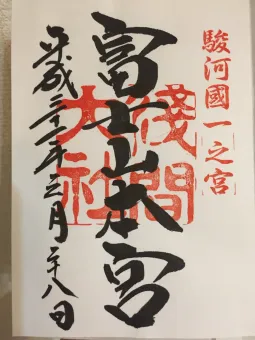 駿河國一之宮
富士山本宮
淺間大社
平成二十一年三月二十八日